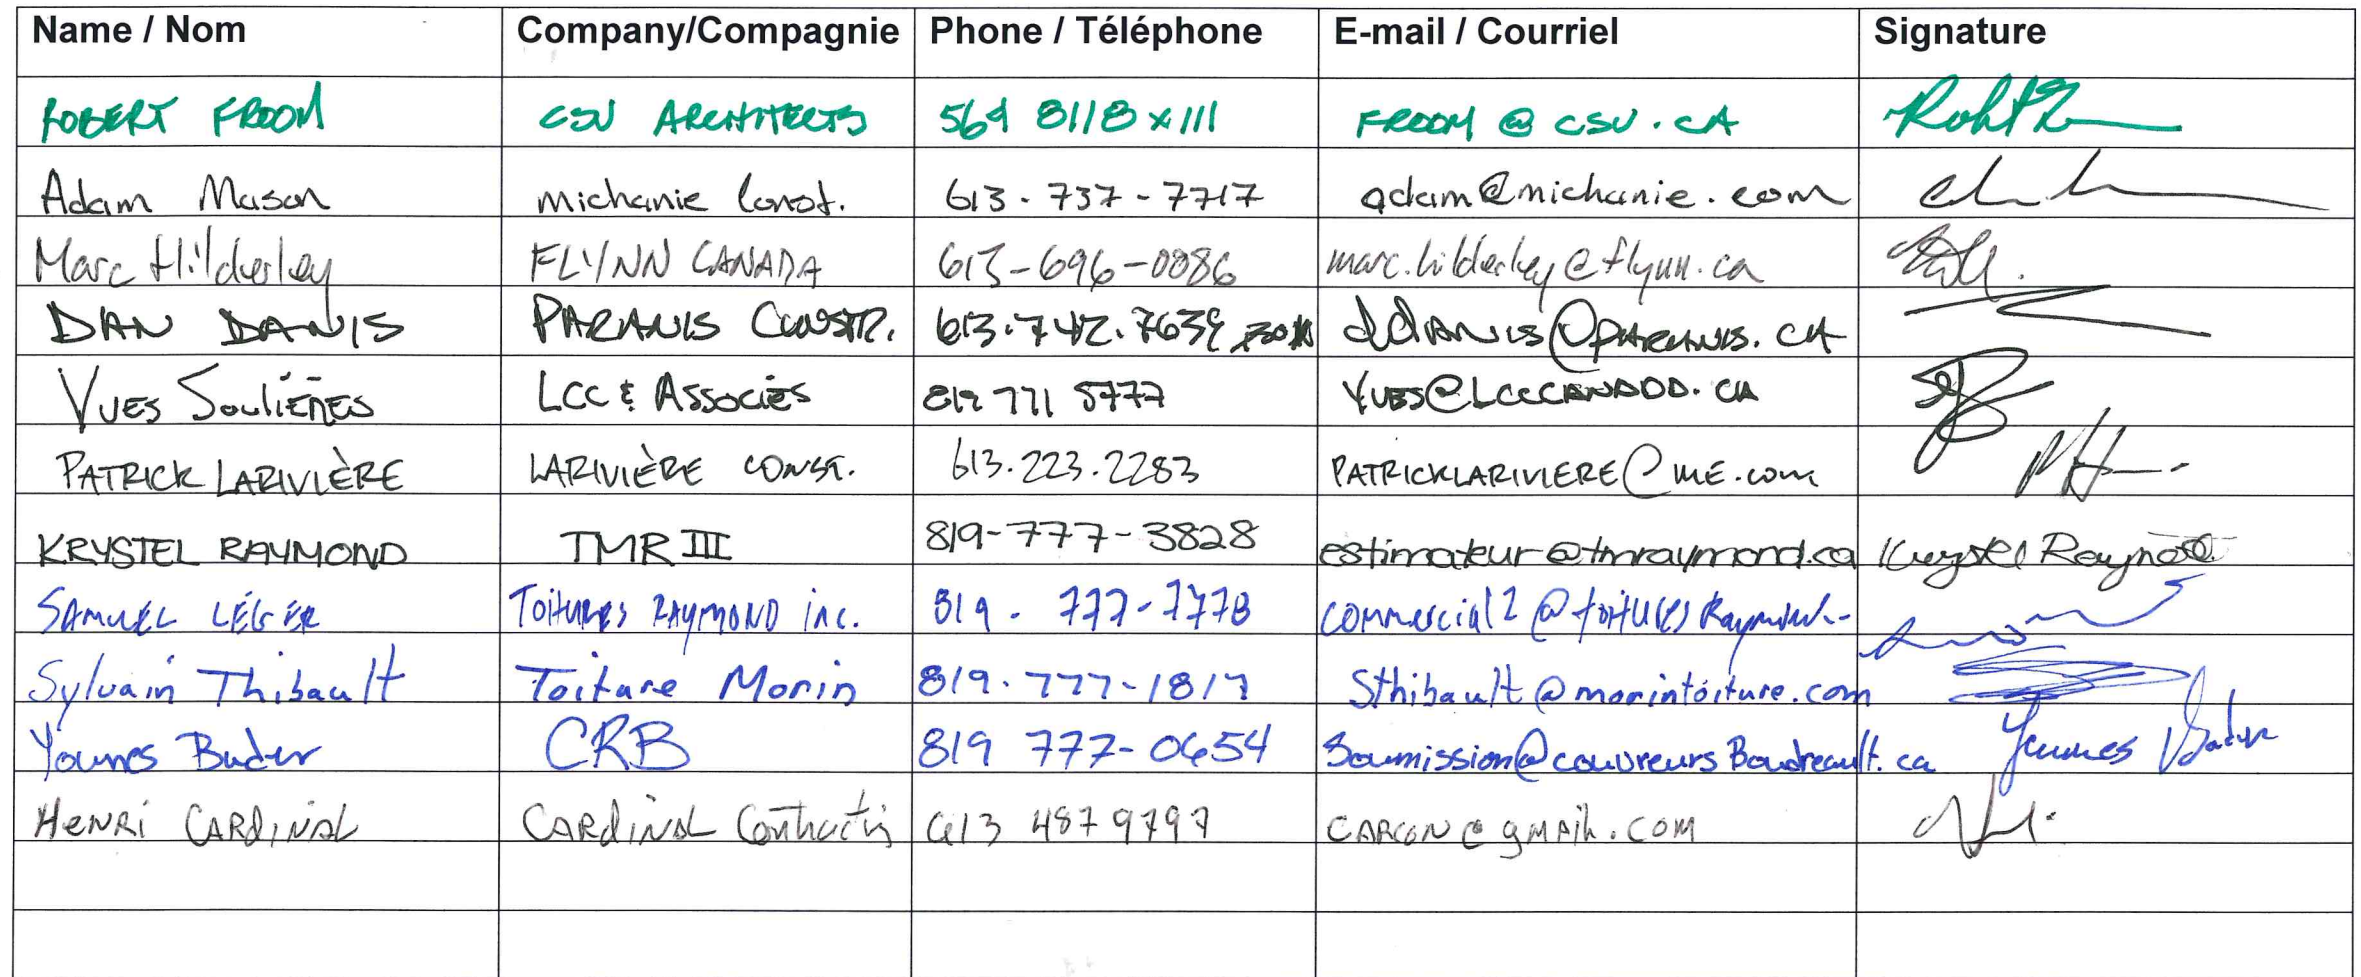 Name / Nom Company/Compagnie Phone / Téléphone E-mail / Courriel Signature
ROBERT FROOM CSV ARCHITECTS 564 8118 x111 FROOM @ CSV.CA
Adam Mason michanie Const. 613-737-7717 adam@michanie.com
Marc Hilderley FLYNN CANADA 613-696-0086 marc.hilderley@flynn.ca
DAN DANIS PARANIS CONSTR. 613.742.7639 ddanis@PARANIS.CA
YVES SOULIÈRES LCC & ASSOCIÉS 819 771 5777 YVES@LCCCANADA.CA
PATRICK LARIVIÈRE LARIVIÈRE CONST. 613.223.2283 PATRICKLARIVIERE@ME.com
KRYSTEL RAYMOND TMR III 819-777-3828 estimateur@tmraymond.ca Krystel Raymond
SAMUEL LÉGER TOITURES RAYMOND inc. 819. 777-7778 commercial2@toitures Raymond
Sylvain Thibault Toiture Morin 819.777-1817 Sthibault@morintoiture.com
Younes Bader CRB 819 777-0654 Soumission@couvreursBoudreault.ca Younes Bader
HENRi CARDiNAL CARDiNAL Contracting 613 487 9797 CARCON@gmail.COM